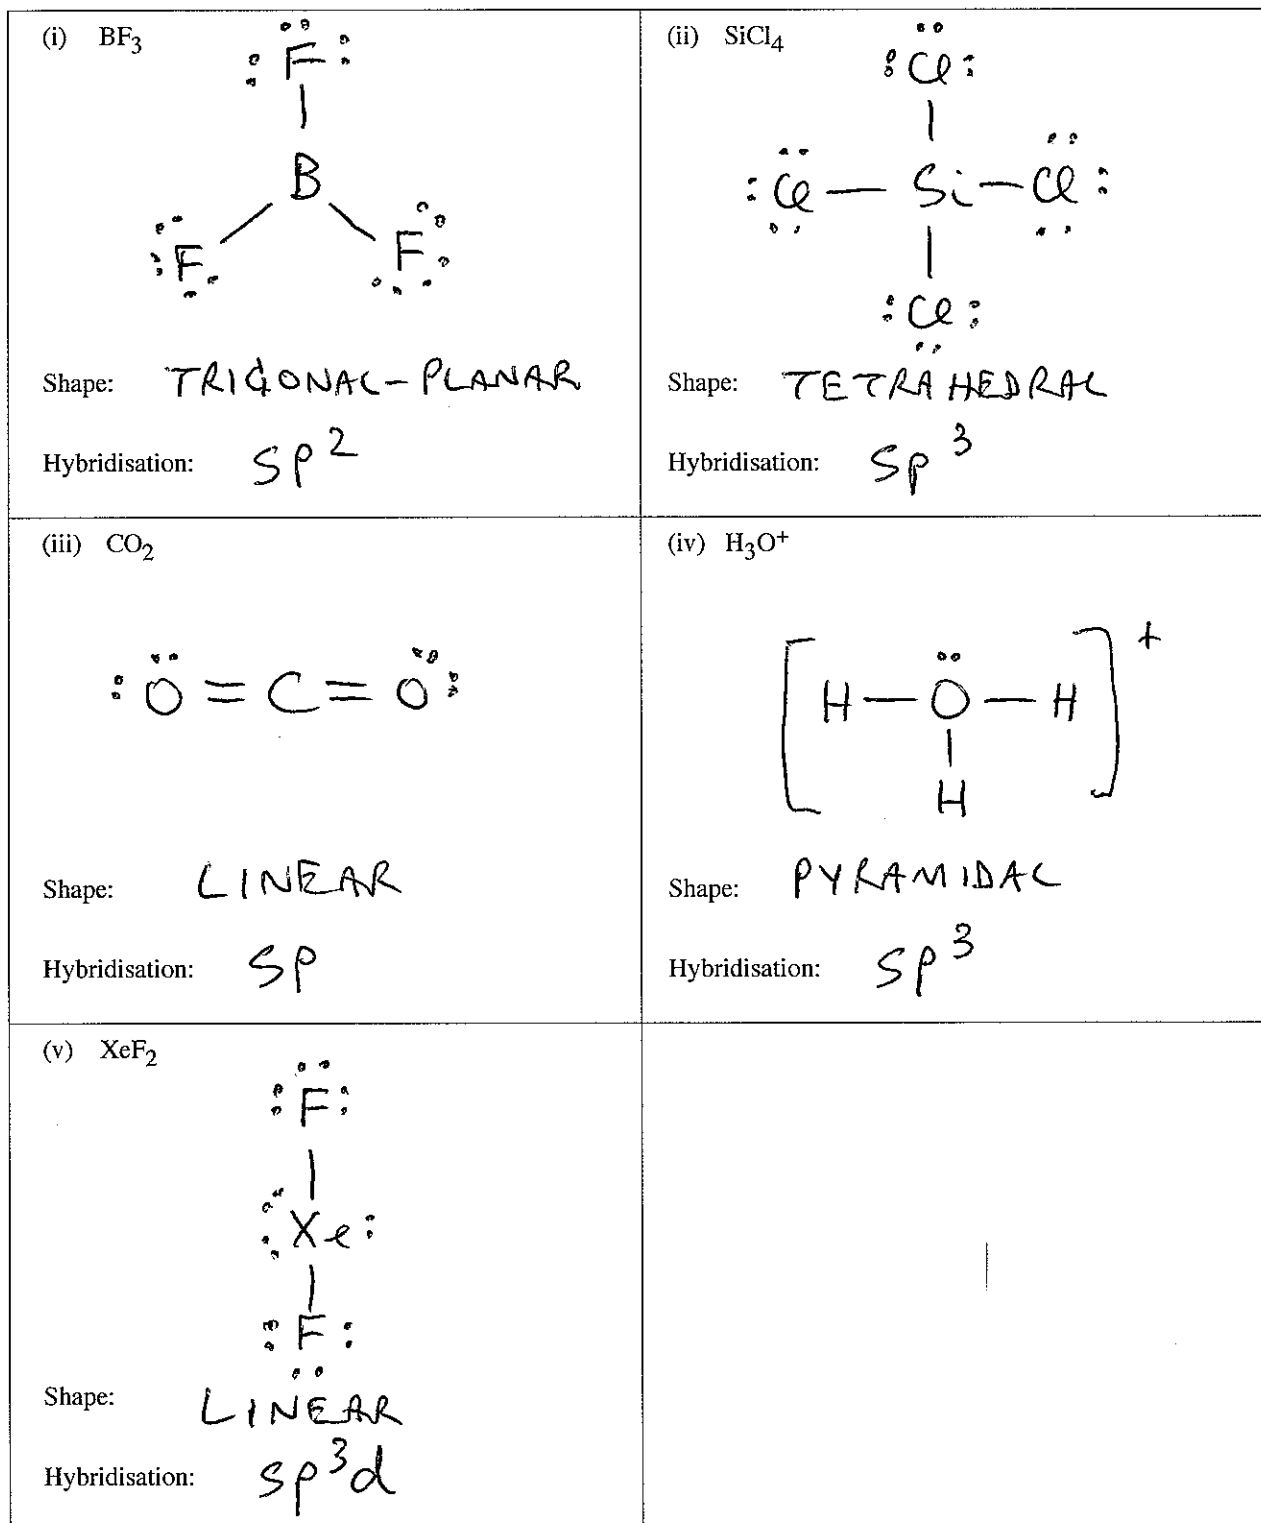 (i) BF3
F
B
F F
Shape: TRIGONAL-PLANAR
Hybridisation: sp2
(ii) SiCl4
Cl
Cl — Si — Cl
Cl
Shape: TETRAHEDRAL
Hybridisation: sp3
(iii) CO2
O = C = O
Shape: LINEAR
Hybridisation: sp
(iv) H3O+
[H — O — H]+
H
Shape: PYRAMIDAL
Hybridisation: sp3
(v) XeF2
F
Xe
F
Shape: LINEAR
Hybridisation: sp3d